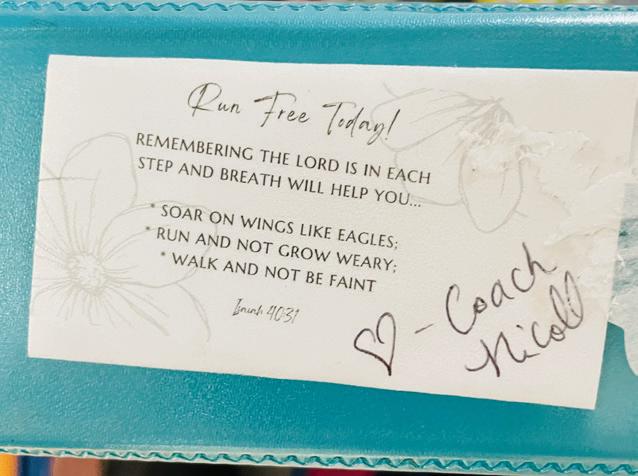 Run Free Today!
REMEMBERING THE LORD IS IN EACH
STEP AND BREATH WILL HELP YOU...
* SOAR ON WINGS LIKE EAGLES;
* RUN AND NOT GROW WEARY;
* WALK AND NOT BE FAINT
Isaiah 40:31
♡ - Coach
Nicoll